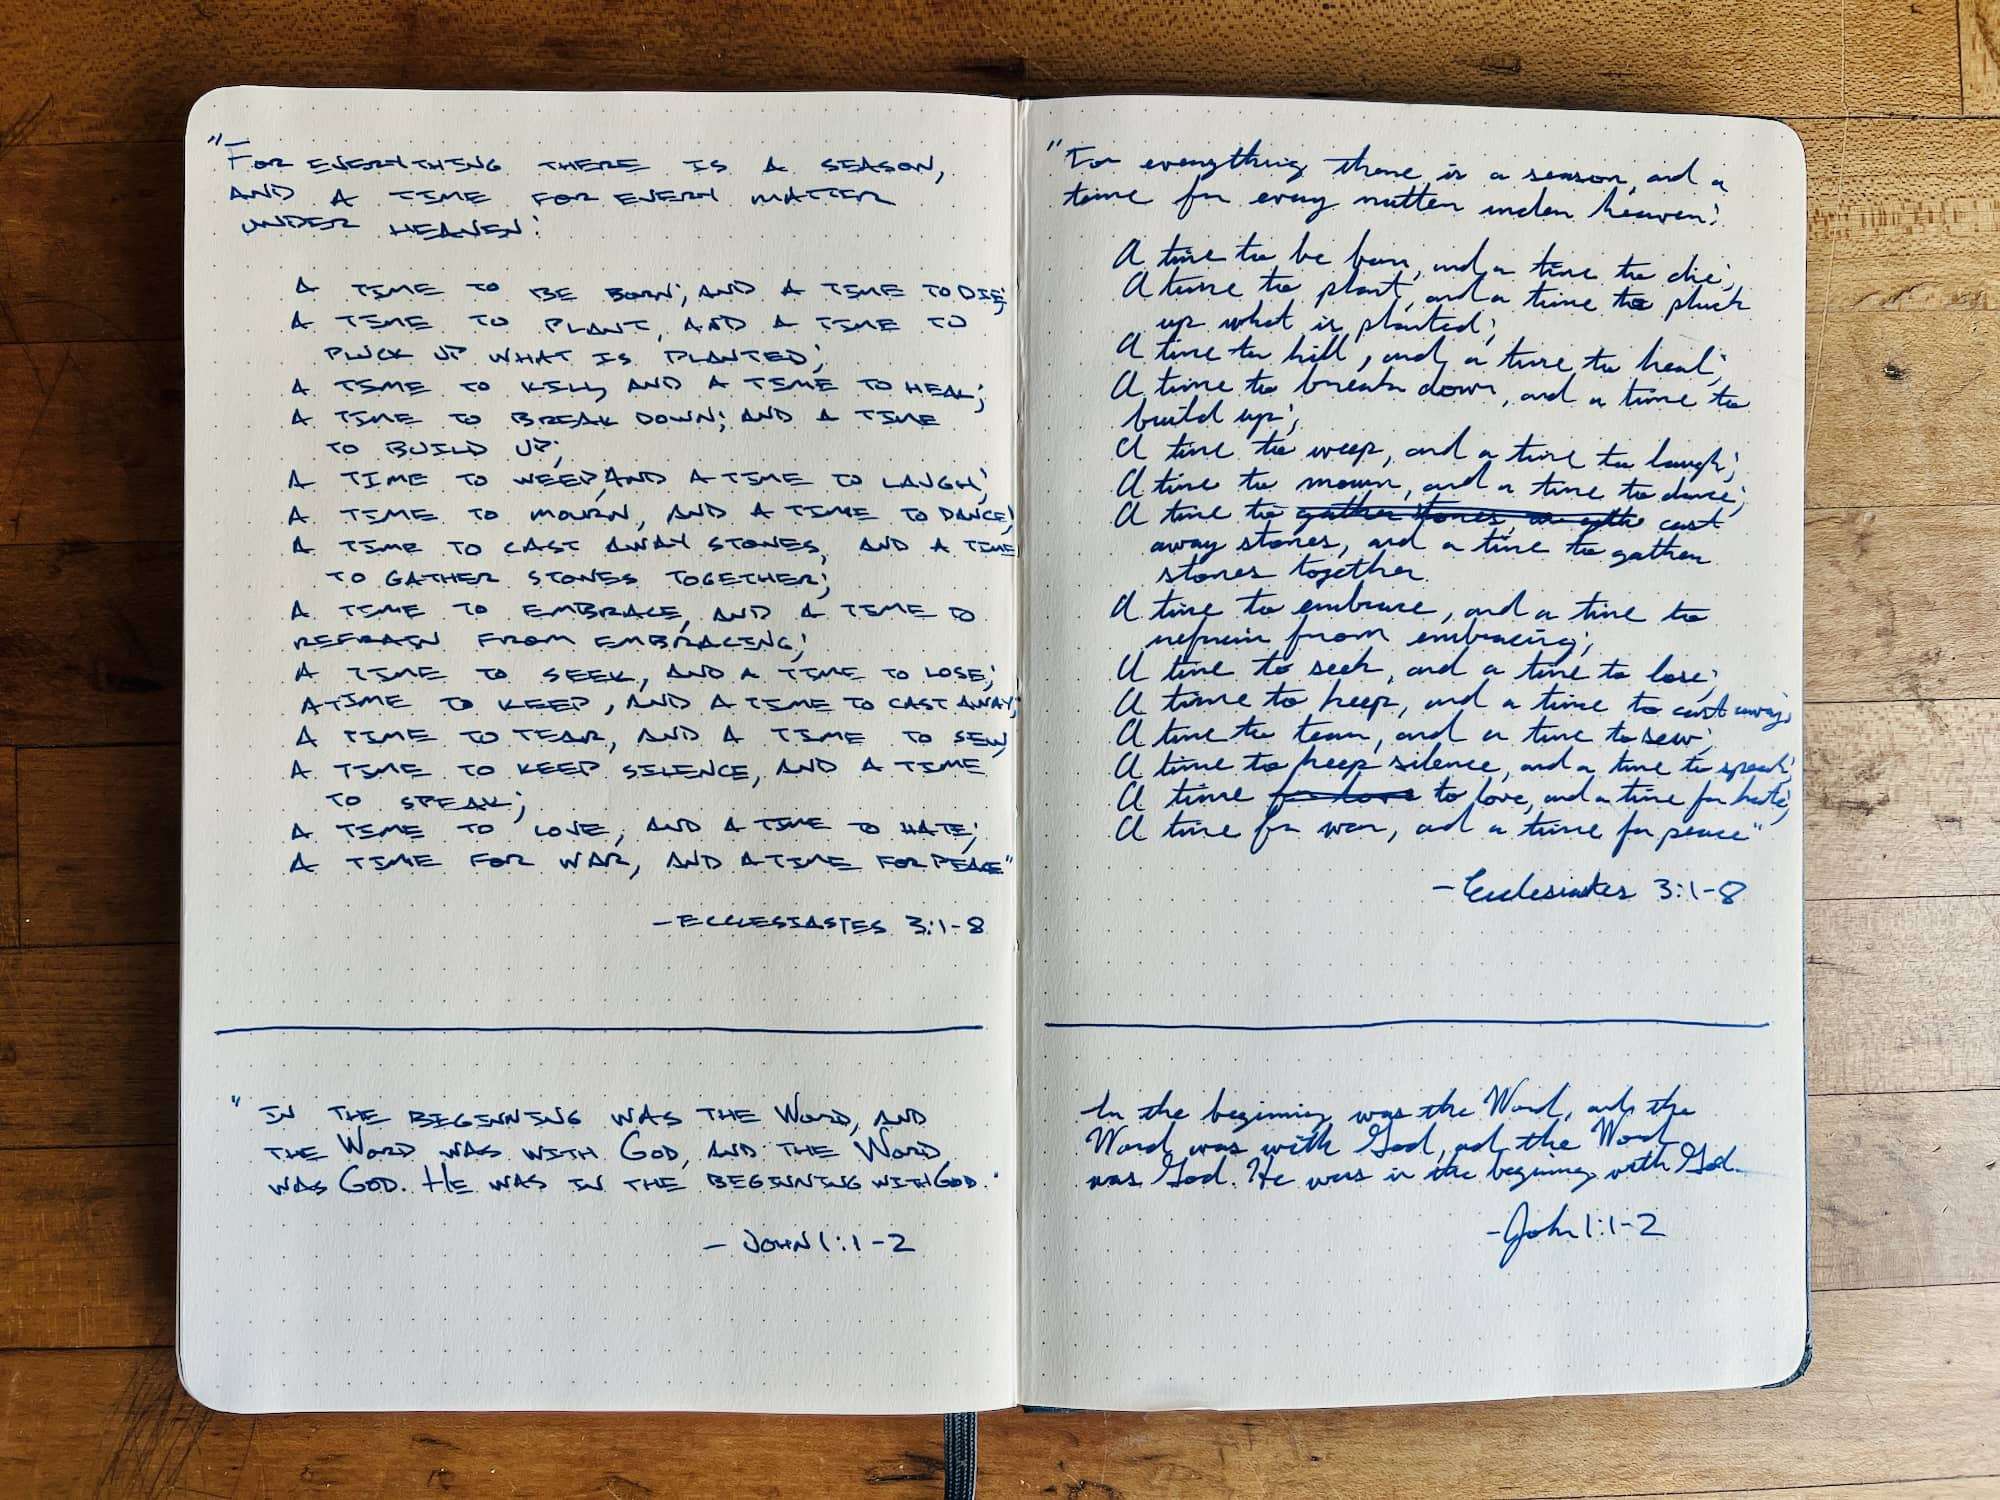 "FOR EVERYTHING THERE IS A SEASON,
AND A TIME FOR EVERY MATTER
UNDER HEAVEN:
A TIME TO BE BORN; AND A TIME TO DIE;
A TIME TO PLANT, AND A TIME TO
PLUCK UP WHAT IS PLANTED;
A TIME TO KILL, AND A TIME TO HEAL;
A TIME TO BREAK DOWN; AND A TIME
TO BUILD UP;
A TIME TO WEEP, AND A TIME TO LAUGH;
A TIME TO MOURN, AND A TIME TO DANCE;
A TIME TO CAST AWAY STONES, AND A TIME
TO GATHER STONES TOGETHER;
A TIME TO EMBRACE, AND A TIME TO
REFRAIN FROM EMBRACING;
A TIME TO SEEK, AND A TIME TO LOSE;
A TIME TO KEEP, AND A TIME TO CAST AWAY;
A TIME TO TEAR, AND A TIME TO SEW;
A TIME TO KEEP SILENCE, AND A TIME
TO SPEAK;
A TIME TO LOVE, AND A TIME TO HATE;
A TIME FOR WAR, AND A TIME FOR PEACE"
-ECCLESIASTES 3:1-8
"IN THE BEGINNING WAS THE WORD, AND
THE WORD WAS WITH GOD, AND THE WORD
WAS GOD. HE WAS IN THE BEGINNING WITH GOD."
- JOHN 1:1-2
"For everything there is a season, and a
time for every matter under heaven:
A time to be born, and a time to die;
A time to plant, and a time to pluck
up what is planted;
A time to kill, and a time to heal;
A time to break down, and a time to
build up;
A time to weep, and a time to laugh;
A time to mourn, and a time to dance;
A time to gather stones, cast
away stones, and a time to gather
stones together
A time to embrace, and a time to
refrain from embracing;
A time to seek, and a time to lose;
A time to keep, and a time to cast away;
A time to tear, and a time to sew;
A time to keep silence, and a time to speak;
A time for love to love, and a time for hate;
A time for war, and a time for peace"
-Ecclesiastes 3:1-8
In the beginning was the Word, and the
Word was with God, and the Word
was God. He was in the beginning with God.
-John 1:1-2